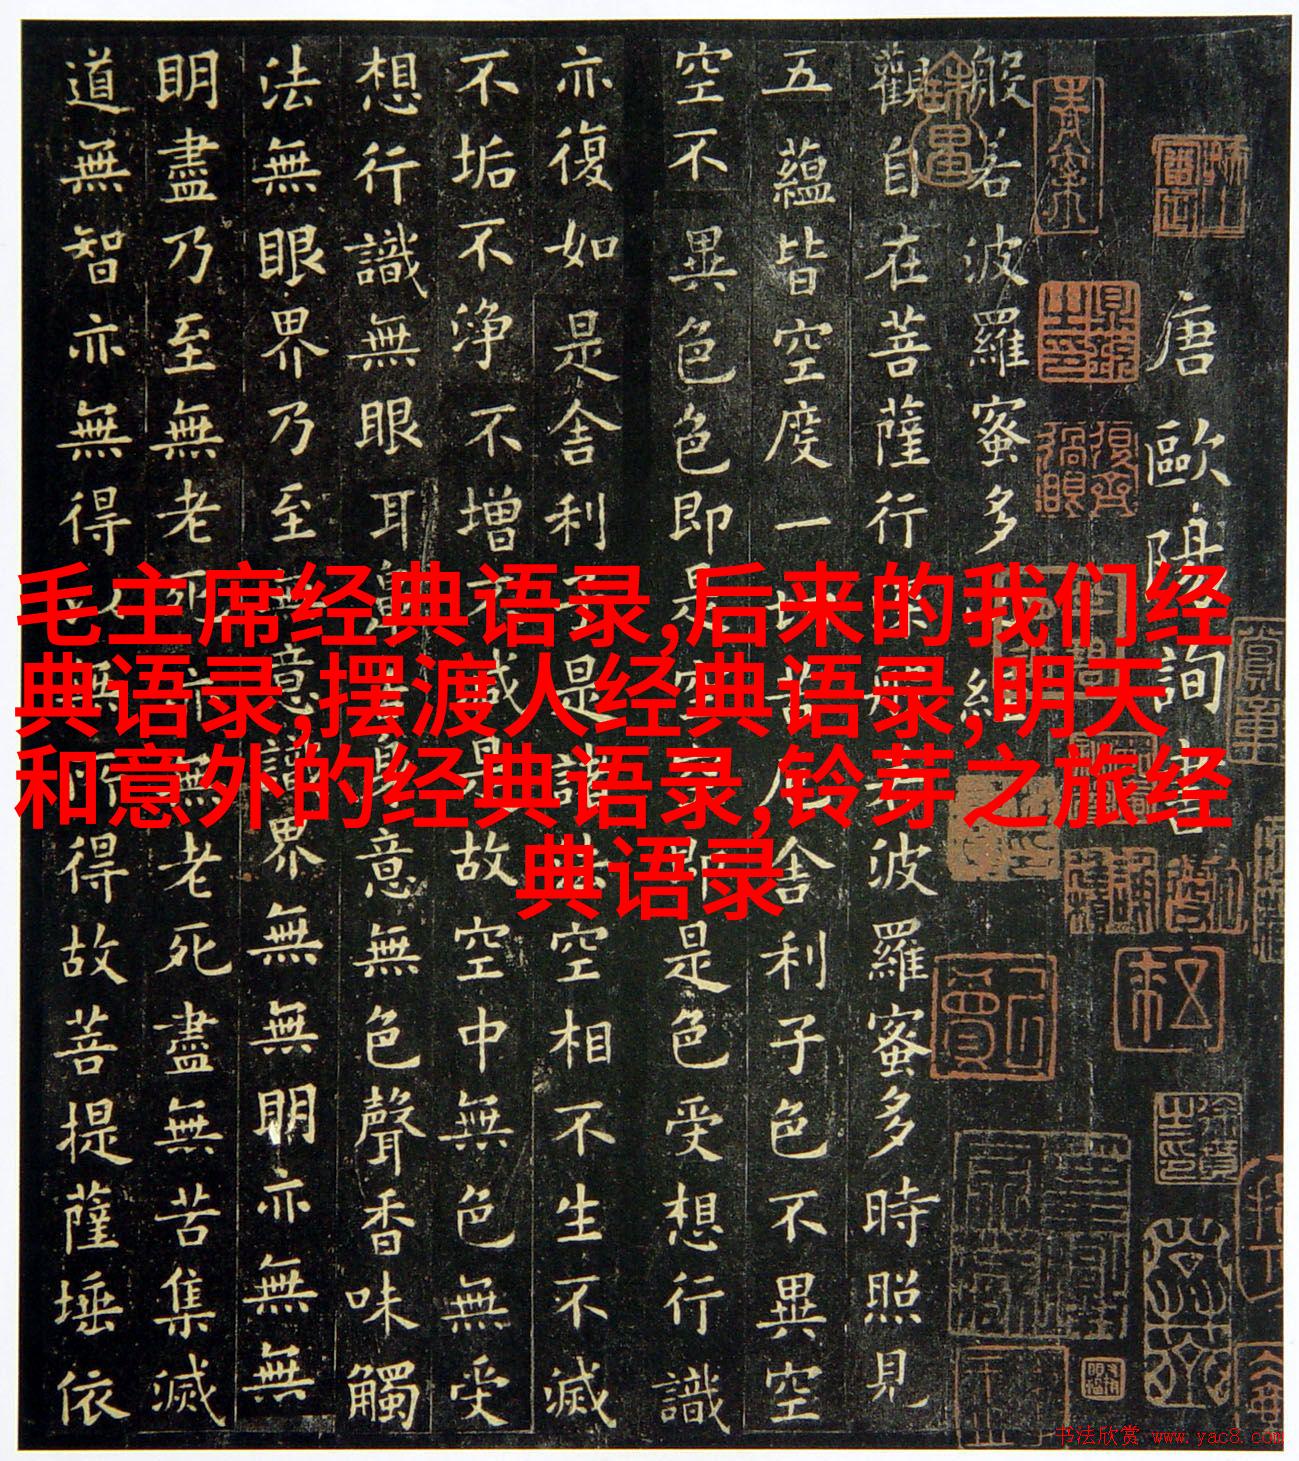 毛主席经典语录,后来的我们经
典语录,摆渡人经典语录,明天
和意外的经典语录,铃芽之旅经
典语录
唐歐陽詢書
般若波羅蜜多心經
觀自在菩薩行深般若波羅蜜多時照見
五蘊皆空度一切苦厄舍利子色不異空
空不異色色即是空空即是色受想行識
亦復如是舍利子是諸法空相不生不滅
不垢不淨不增不減是故空中無色無受
想行識無眼耳鼻舌身意無色聲香味觸
法無眼界乃至無意識界無無明亦無無
明盡乃至無老死亦無老死盡無苦集滅
道無智亦無得以無所得故菩提薩埵依
书法欣赏 www.yac8.com